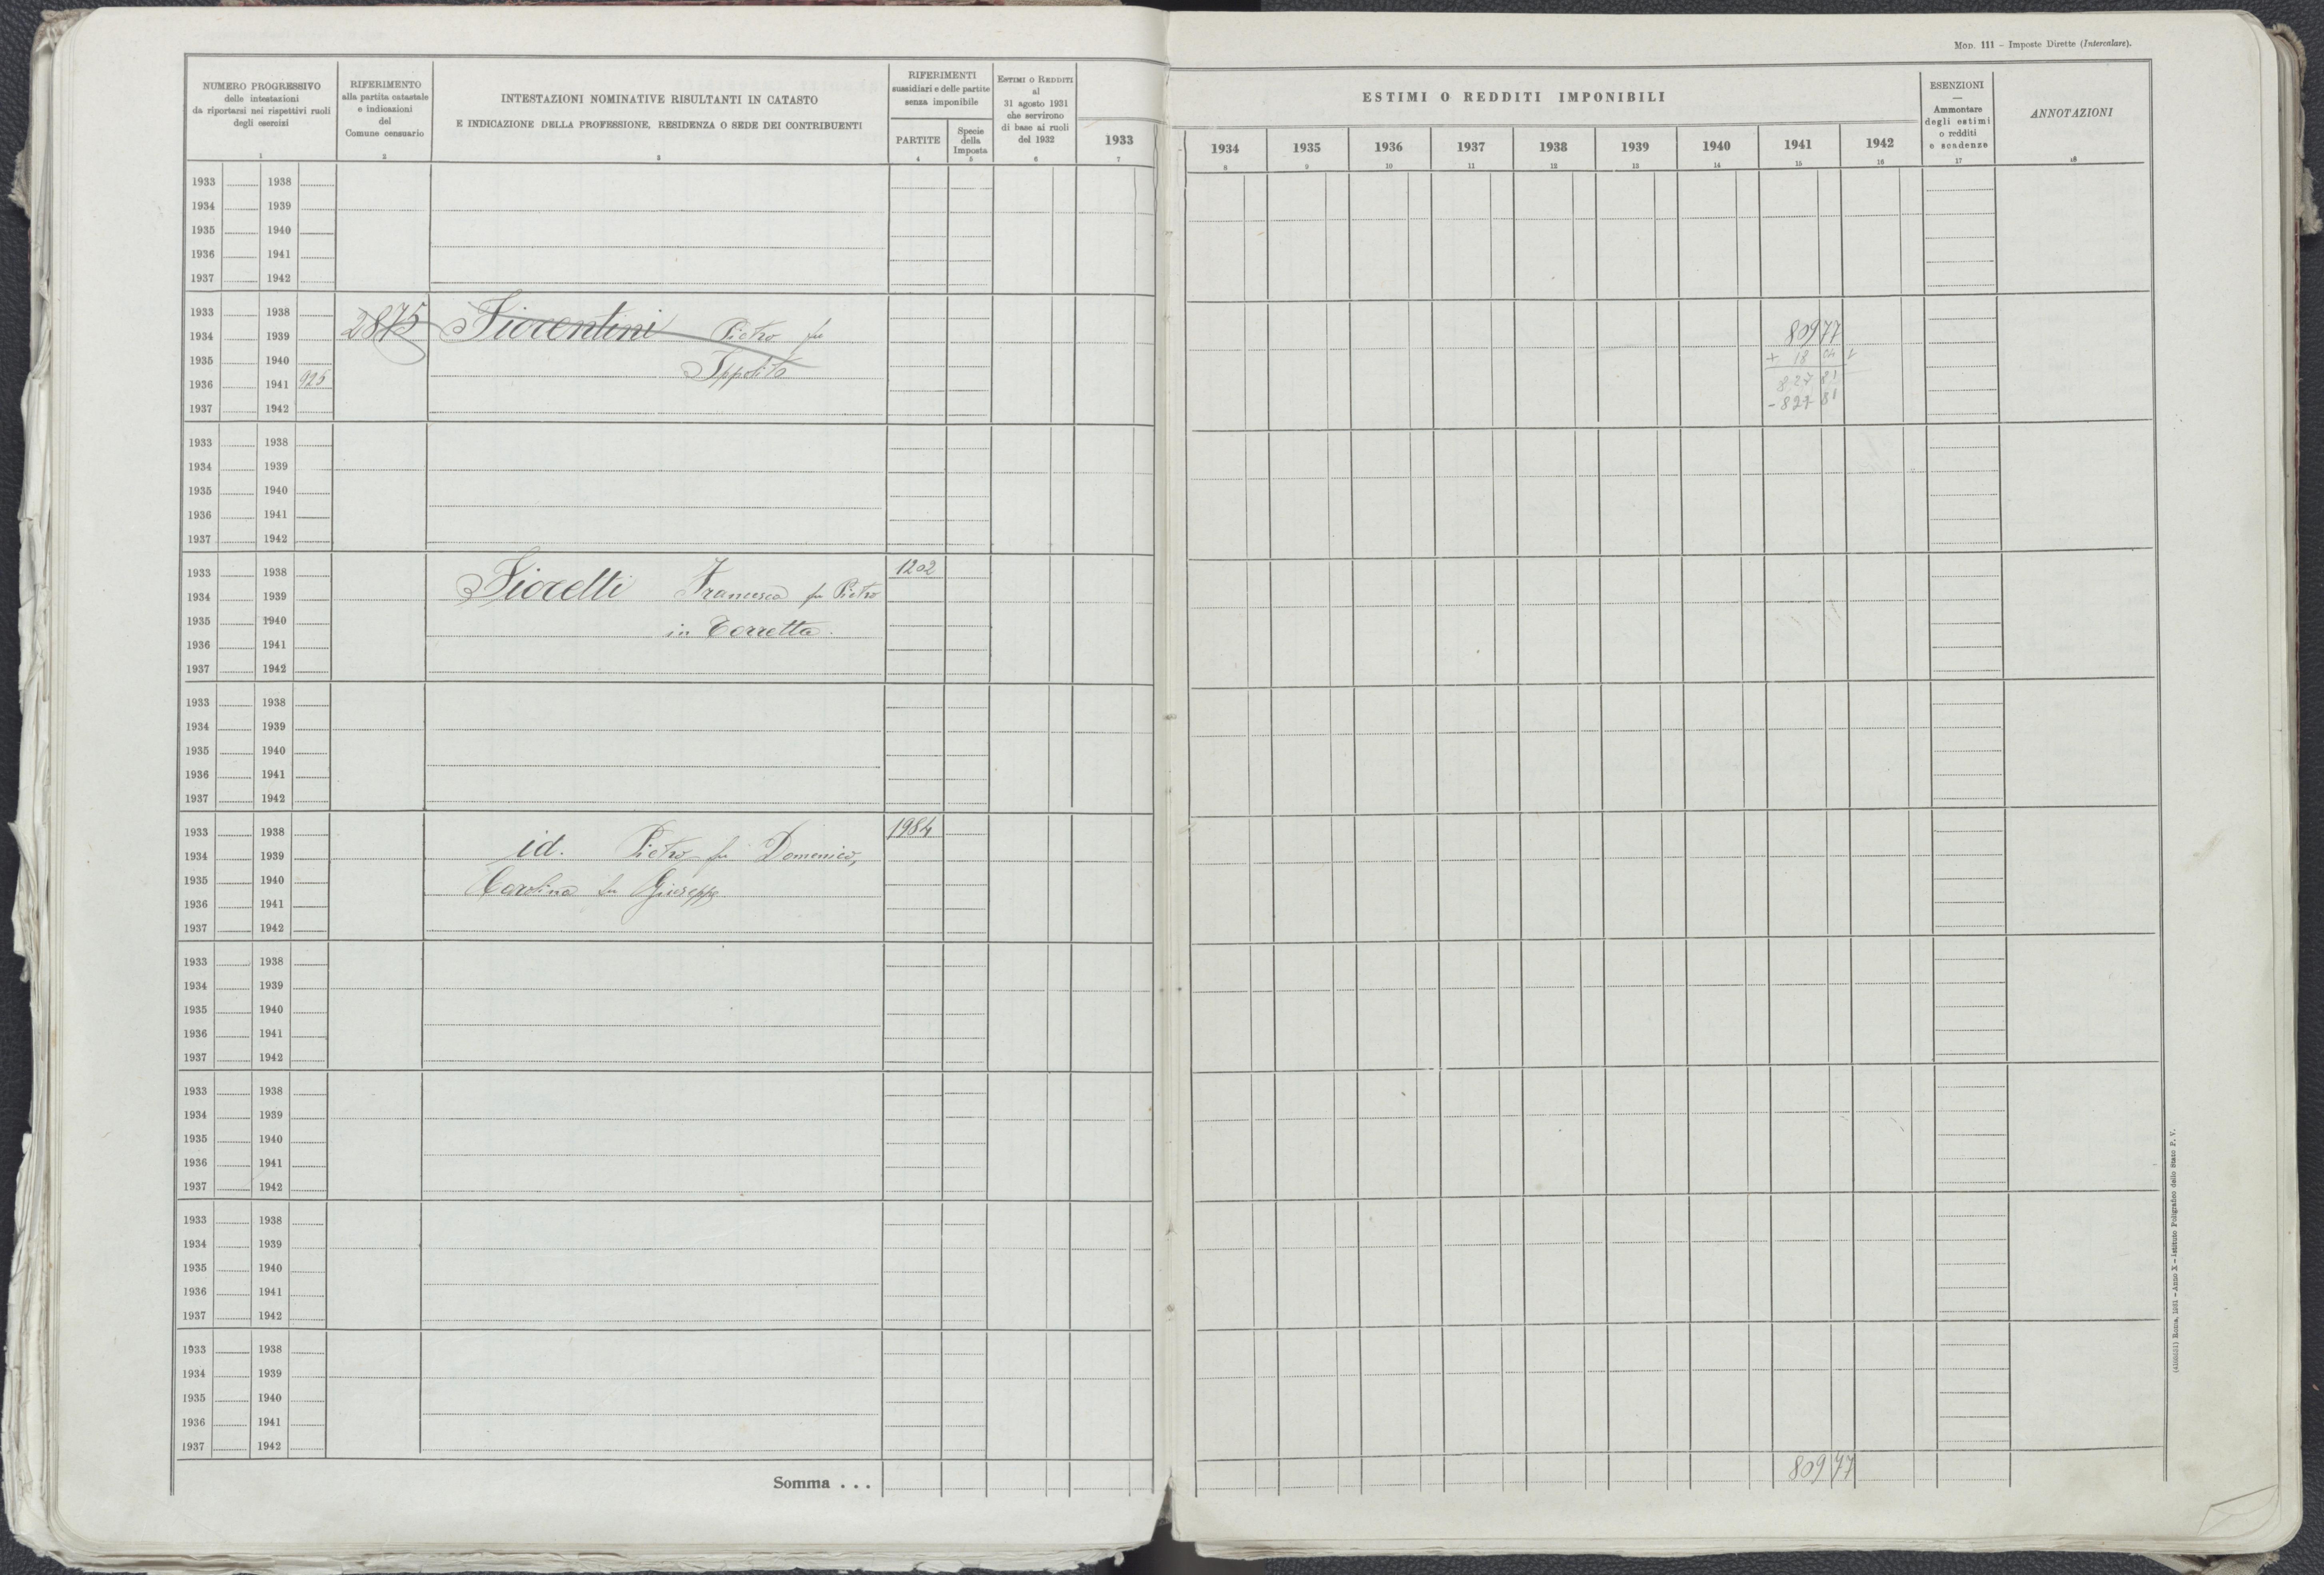 Mod. 111 – Imposte Dirette (Intercalare).
NUMERO PROGRESSIVO
delle intestazioni
da riportarsi nei rispettivi ruoli
degli esercizi
1
RIFERIMENTO
alla partita catastale
e indicazioni
del
Comune censuario
2
INTESTAZIONI NOMINATIVE RISULTANTI IN CATASTO
E INDICAZIONE DELLA PROFESSIONE, RESIDENZA O SEDE DEI CONTRIBUENTI
3
RIFERIMENTI
sussidiari e delle partite
senza imponibile
PARTITE
4
Specie
della
Imposta
5
Estimi o Redditi
al
31 agosto 1931
che servirono
di base ai ruoli
del 1932
6
1933
7
ESTIMI O REDDITI IMPONIBILI
1934 1935 1936 1937 1938 1939 1940 1941 1942
8 9 10 11 12 13 14 15 16
ESENZIONI
—
Ammontare
degli estimi
o redditi
e scadenze
17
ANNOTAZIONI
18
1933 1938
1934 1939
1935 1940
1936 1941
1937 1942
1933 1938
1934 1939 2875 Fiorentini Pietro fu 809 77
1935 1940 Ippolito + 18 04
1936 1941 925 827 81
1937 1942 - 827 81
1933 1938
1934 1939
1935 1940
1936 1941
1937 1942
1933 1938 1202
1934 1939 Fioretti Francesco fu Pietro
1935 1940 in Torretta.
1936 1941
1937 1942
1933 1938
1934 1939
1935 1940
1936 1941
1937 1942
1933 1938 1984
1934 1939 id. Pietro fu Domenico,
1935 1940 Carolina fu Giuseppe
1936 1941
1937 1942
1933 1938
1934 1939
1935 1940
1936 1941
1937 1942
1933 1938
1934 1939
1935 1940
1936 1941
1937 1942
1933 1938
1934 1939
1935 1940
1936 1941
1937 1942
1933 1938
1934 1939
1935 1940
1936 1941
1937 1942
Somma . . . 809 77
Roma, 1931 – Anno X – Istituto Poligrafico dello Stato P. V.